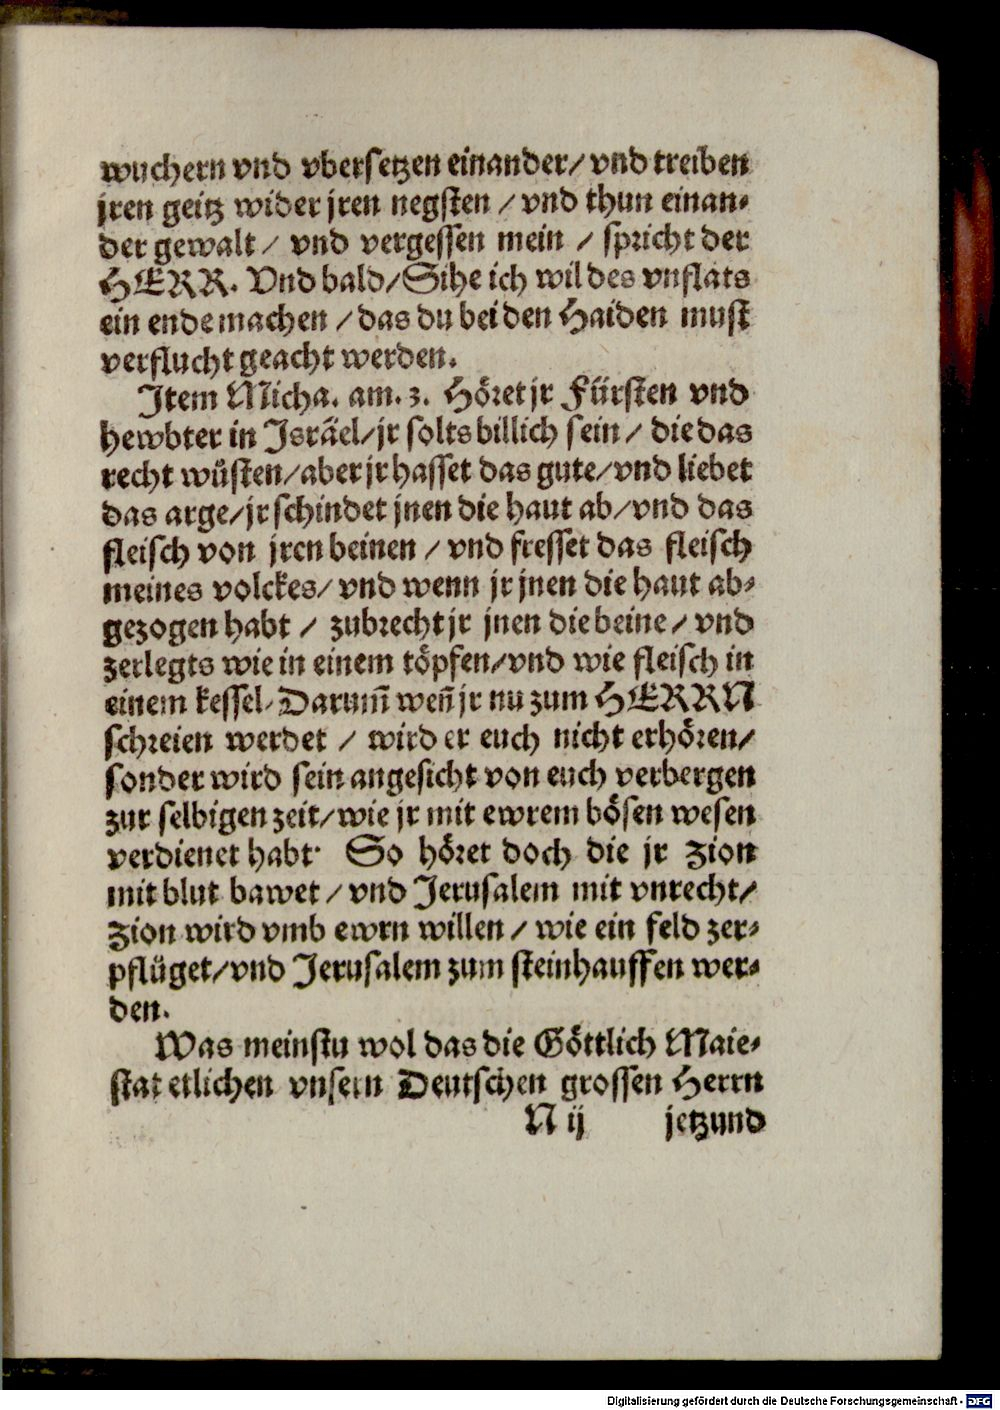 wuchern vnd vbersetzen einander/ vnd treiben
jren geitz wider jren negsten / vnd thun einan-
der gewalt / vnd vergessen mein / spricht der
HERR. Vnd bald/Sihe ich wil des vnflats
ein ende machen / das du bei den Haiden must
verflucht geacht werden.
Item Micha. am. 3. Höret jr Fürsten vnd
hewbter in Israel/jr solts billich sein / die das
recht wüsten/aber jr hasset das gute/vnd liebet
das arge/jr schindet jnen die haut ab/vnd das
fleisch von jren beinen / vnd fresset das fleisch
meines volckes/ vnd wenn jr jnen die haut ab-
gezogen habt / zubrecht jr jnen die beine/ vnd
zerlegts wie in einem töpfen/vnd wie fleisch in
einem kessel/Darum̄ weñ jr nu zum HERRN
schreien werdet / wird er euch nicht erhören/
sonder wird sein angesicht von euch verbergen
zur selbigen zeit/wie jr mit ewrem bösen wesen
verdienet habt. So höret doch die jr Zion
mit blut bawet / vnd Jerusalem mit vnrecht/
Zion wird vmb ewrn willen / wie ein feld zer-
pflüget/vnd Jerusalem zum steinhauffen wer-
den.
Was meinstu wol das die Göttlich Maie-
stat etlichen vnsern Deutschen grossen Herrn
N ij jetzund
Digitalisierung gefördert durch die Deutsche Forschungsgemeinschaft - DFG